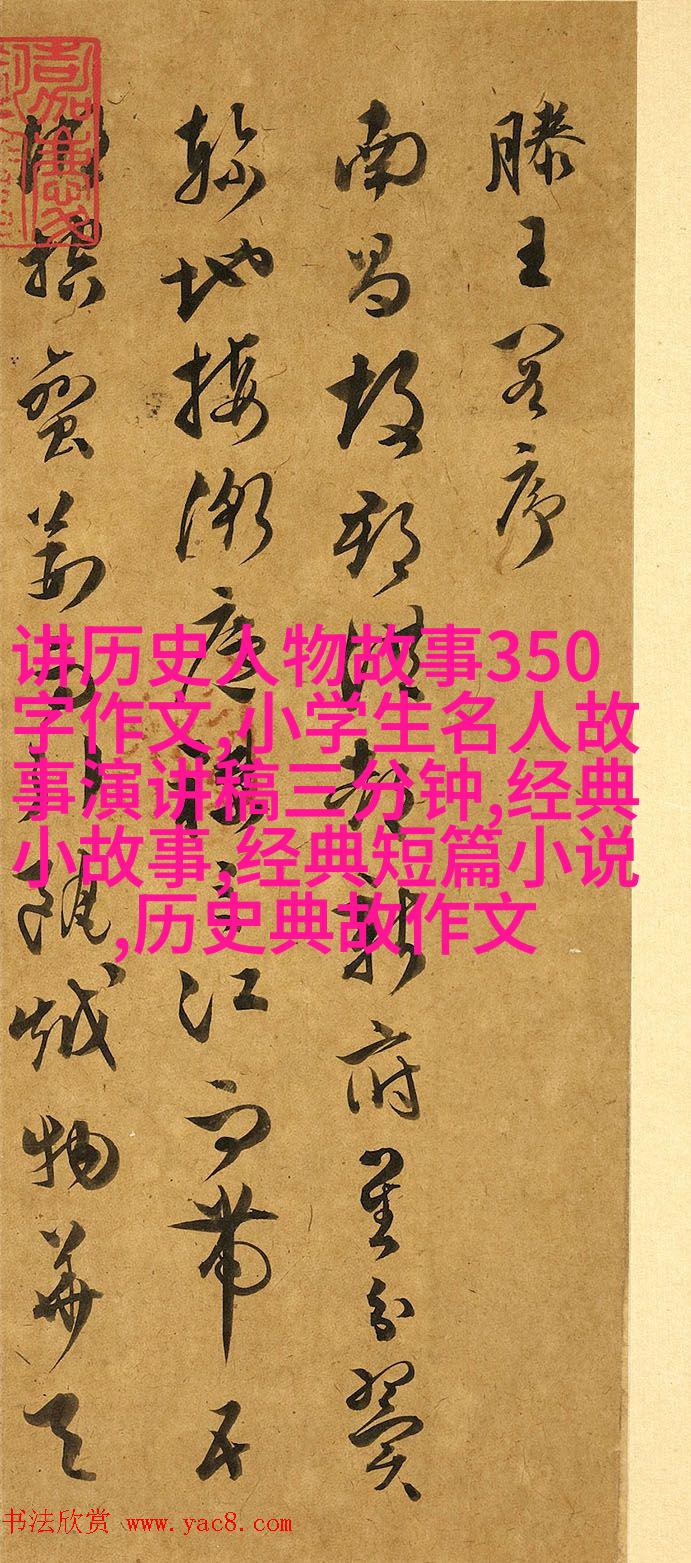 滕王閣序
南昌故郡洪都新府星分翼
軫地接衡廬襟三江而帶五
湖控蠻荆而引甌越物華天
讲历史人物故事350
字作文,小学生名人故
事演讲稿三分钟,经典
小故事,经典短篇小说
,历史典故作文
书法欣赏 www.yac8.com